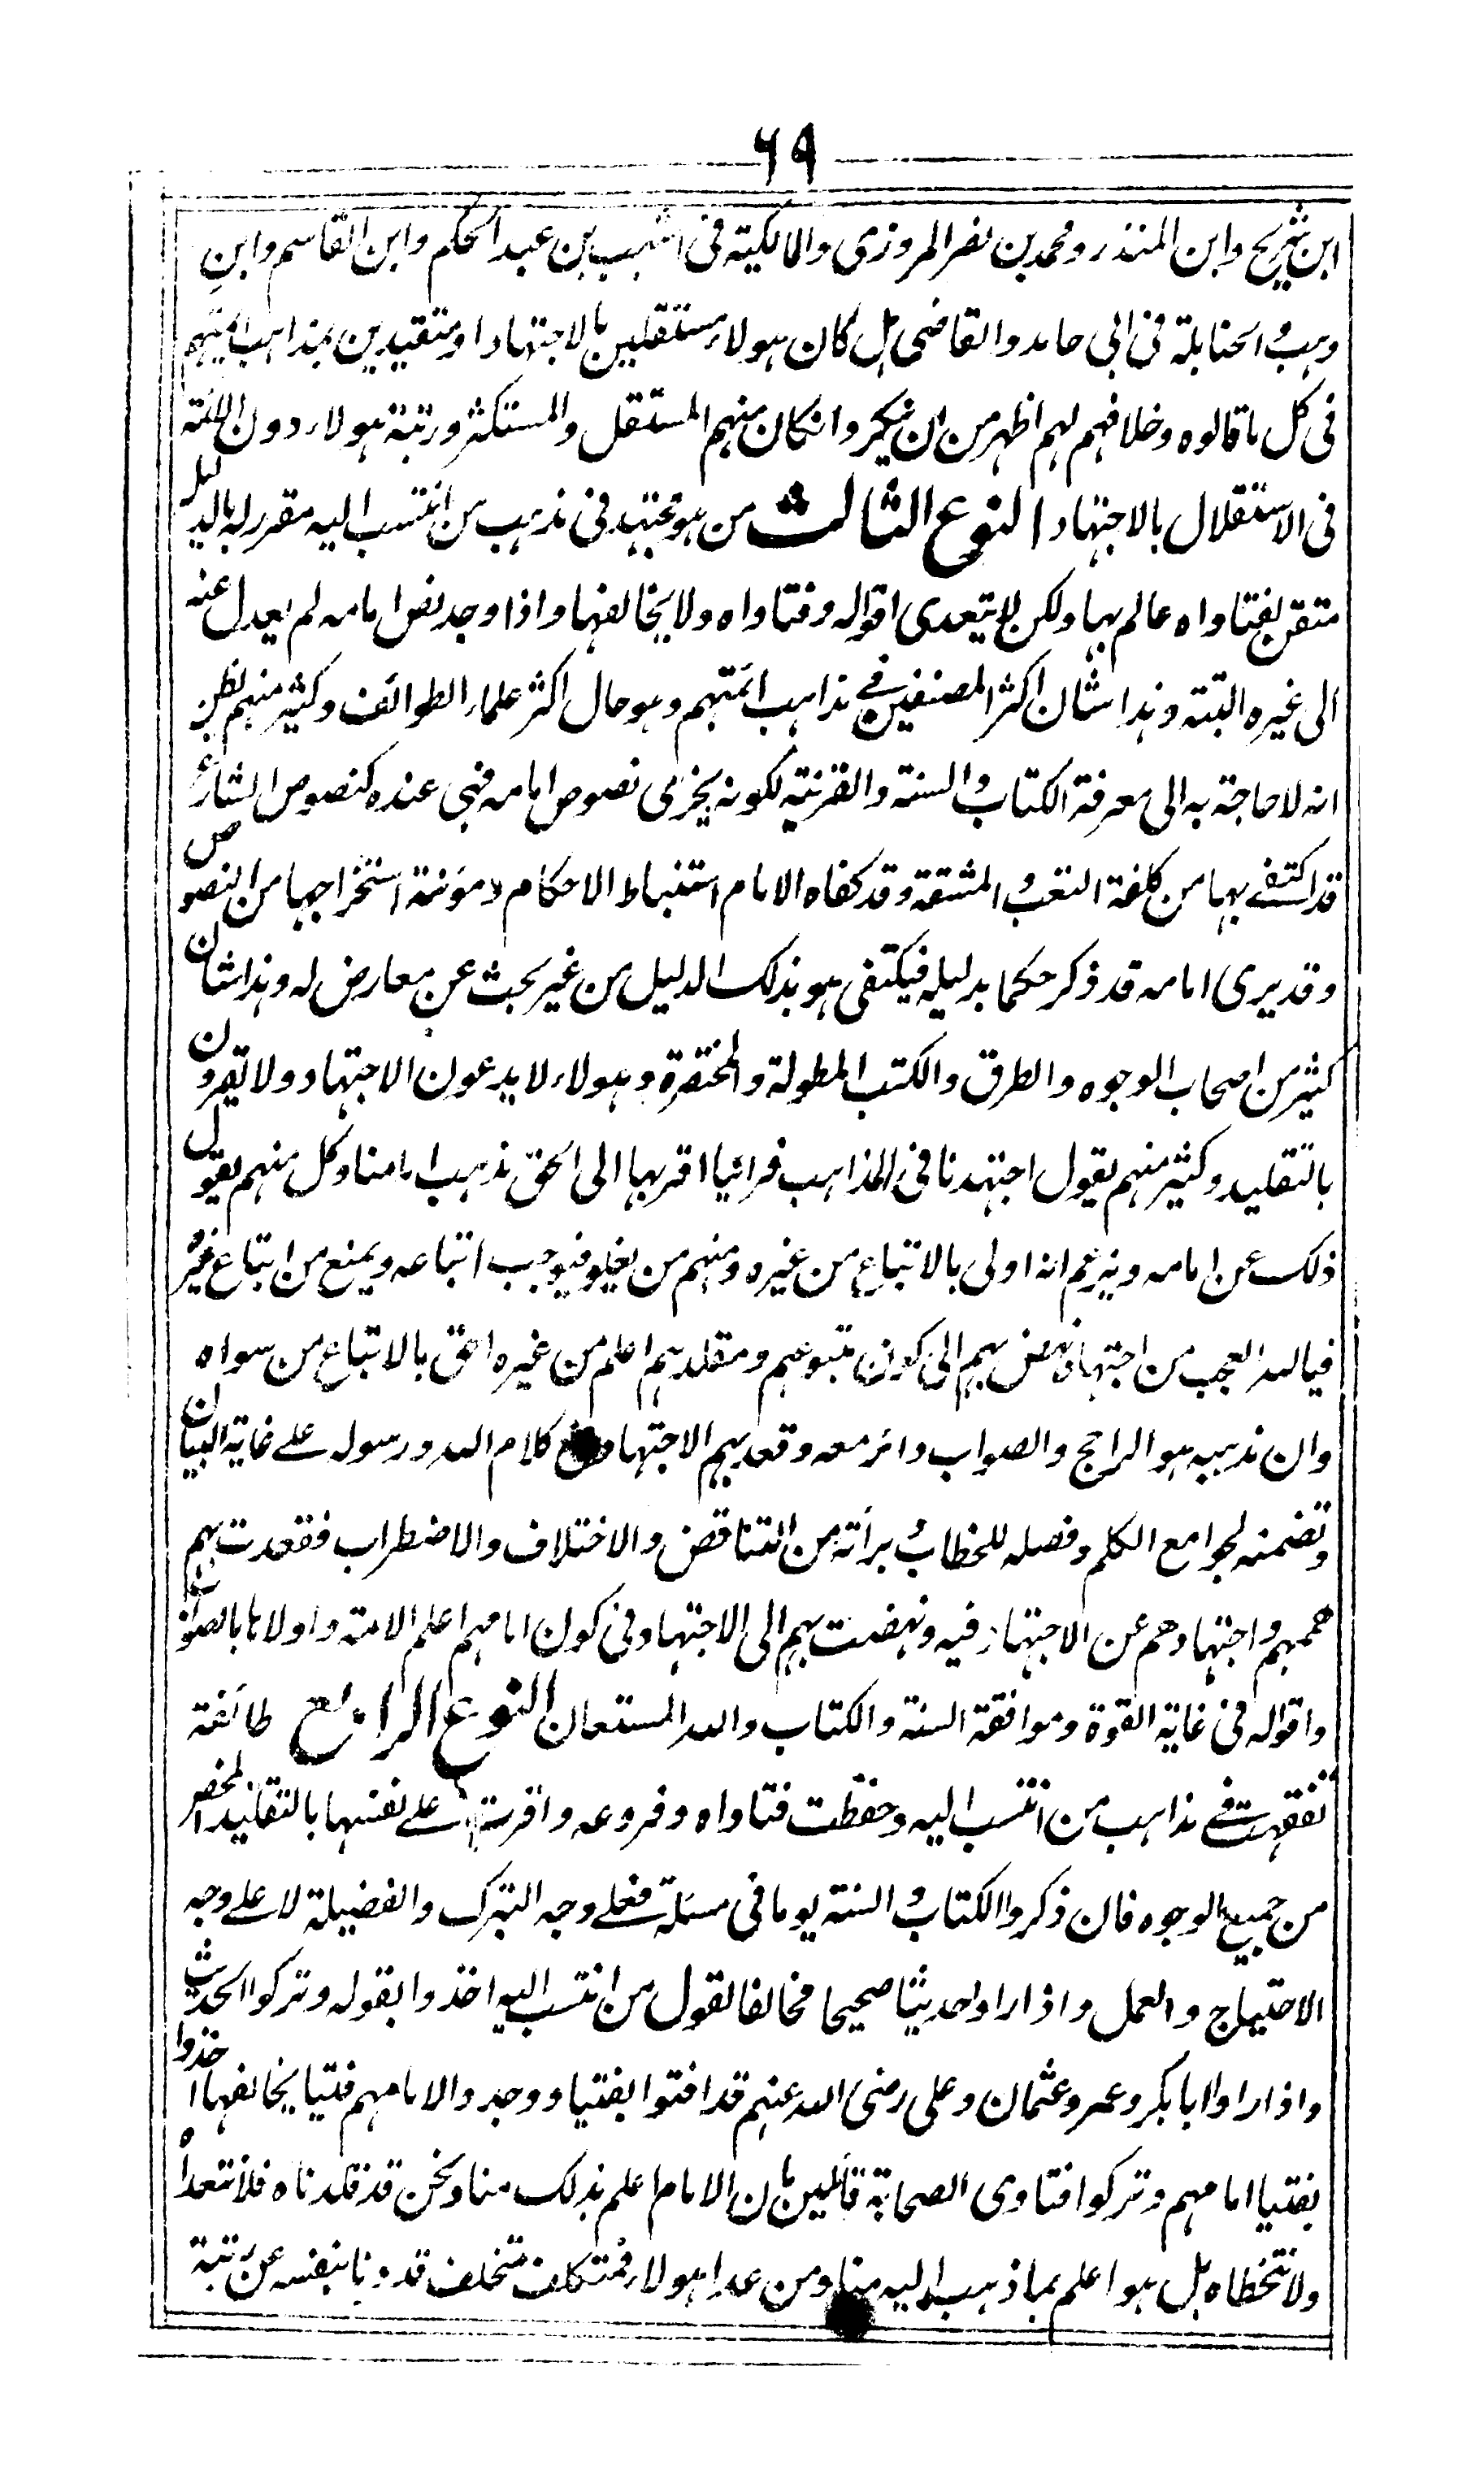 ٦٩
ابن شريح وابن المنذر ومحمد بن نصر المروزى والمالكية فى اشهب بن عبد الحكم وابن القاسم وابن
وهب والحنابلة فى ابى حامد والقاضى هل كان هولاء مستقلين بالاجتهاد او متقيدين بمذاهب ائمتهم
فى كل ما قالوه وخلافهم لهم اظهر من ان ينكر وان كان منهم المستقل والمستكثر ورتبة هولاء دون الائمة
فى الاستقلال بالاجتهاد النوع الثالث من هو مجتهد فى مذهب من انتسب اليه مقرر له بالدليل
متقن بفتاواه عالم بها ولكن لا يتعدى اقواله وفتاواه ولا يخالفها واذا وجد نص امامه لم يعدل عنه
الى غيره البتة وهذا شان اكثر المصنفين فى مذاهب ائمتهم وهو حال اكثر علماء الطوائف وكثير منهم يظن
انه لا حاجة به الى معرفة الكتاب والسنة والقرنية لكونه يجزى نصوص امامه فهى عنده كنصوص الشارع
قد اكتفى بها من كلفة التعب والمشقة وقد كفاه الامام استنباط الاحكام ومؤنة استخراجها من النصوص
وقد يرى امامه قد ذكر حكما بدليله فيكتفى هو بذلك الدليل من غير بحث عن معارض له وهذا شان
كثير من اصحاب الوجوه والطرق والكتب المطولة والمختصرة وهولاء لا يدعون الاجتهاد ولا يقرون
بالتقليد وكثير منهم يقول اجتهدنا فى المذاهب فراينا اقربها الى الحق مذهب امامنا وكل منهم يقول
ذلك عن امامه ويزعم انه اولى بالاتباع من غيره ومنهم من يغلو فيوجب اتباعه ويمنع من اتباع غيره
فيا لله العجب من اجتهاد نهض بهم الى كون متبوعهم ومقلدهم اعلم من غيره احق بالاتباع من سواه
وان مذهبه هو الراجح والصواب دائر معه وقعد بهم الاجتهاد فى كلام الله ورسوله على غاية البيان
وتضمنه لجوامع الكلم وفصله للخطاب وبرأته من التناقض والاختلاف والاضطراب فقعدت بهم
هممهم واجتهادهم عن الاجتهاد فيه ونهضت بهم الى الاجتهاد فى كون امامهم اعلم الامة واولاها بالصواب
واقواله فى غاية القوة وموافقة السنة والكتاب والله المستعان النوع الرابع طائفة
تفقهت فى مذاهب من انتسب اليه وحفظت فتاواه وفروعه واقرت على نفسها بالتقليد المحض
من جميع الوجوه فان ذكروا الكتاب والسنة يوما فى مسئلة فعلى وجه التبرك والفضيلة لا على وجه
الاحتياج والعمل واذا راوا حديثا صحيحا مخالفا لقول من انتسب اليه اخذوا بقوله وتركوا الحديث
واذا راوا ابا بكر وعمر وعثمان وعلى رضى الله عنهم قد افتوا بفتيا ووجدوا لامامهم فتيا يخالفها اخذوا
بفتيا امامهم وتركوا فتاوى الصحابة قائلين بان الامام اعلم بذلك منا ونحن قد قلدناه فلا نتعداه
ولا نتخطاه بل هو اعلم بما ذهب اليه منا ومن عدا هولاء فمتكلف متخلف قد دنا بنفسه عن رتبة